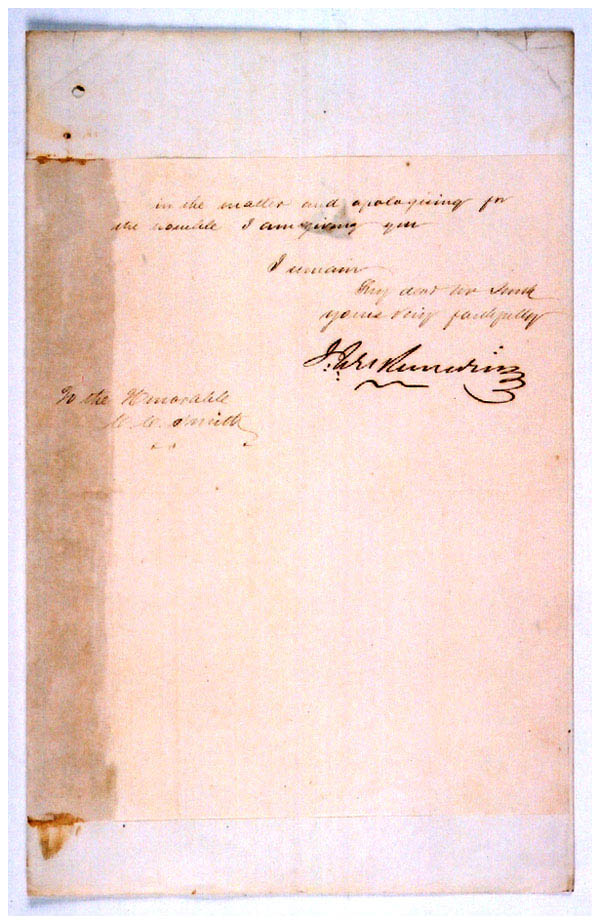 in the matter and apologising for
the trouble I am giving you
I remain
My dear Mr Smith
yours very faithfully
To the Honorable
Smith